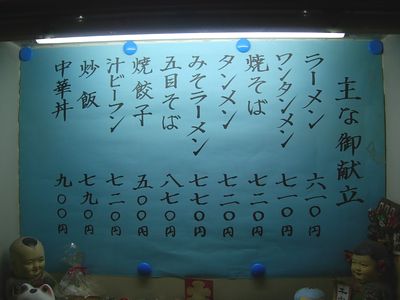 主な御献立
ラーメン 六一〇円
ワンタンメン 七一〇円
焼そば 七二〇円
タンメン 七二〇円
みそラーメン 七七〇円
五目そば 八七〇円
焼餃子 五〇〇円
汁ビーフン 七二〇円
炒飯 七九〇円
中華丼 九〇〇円